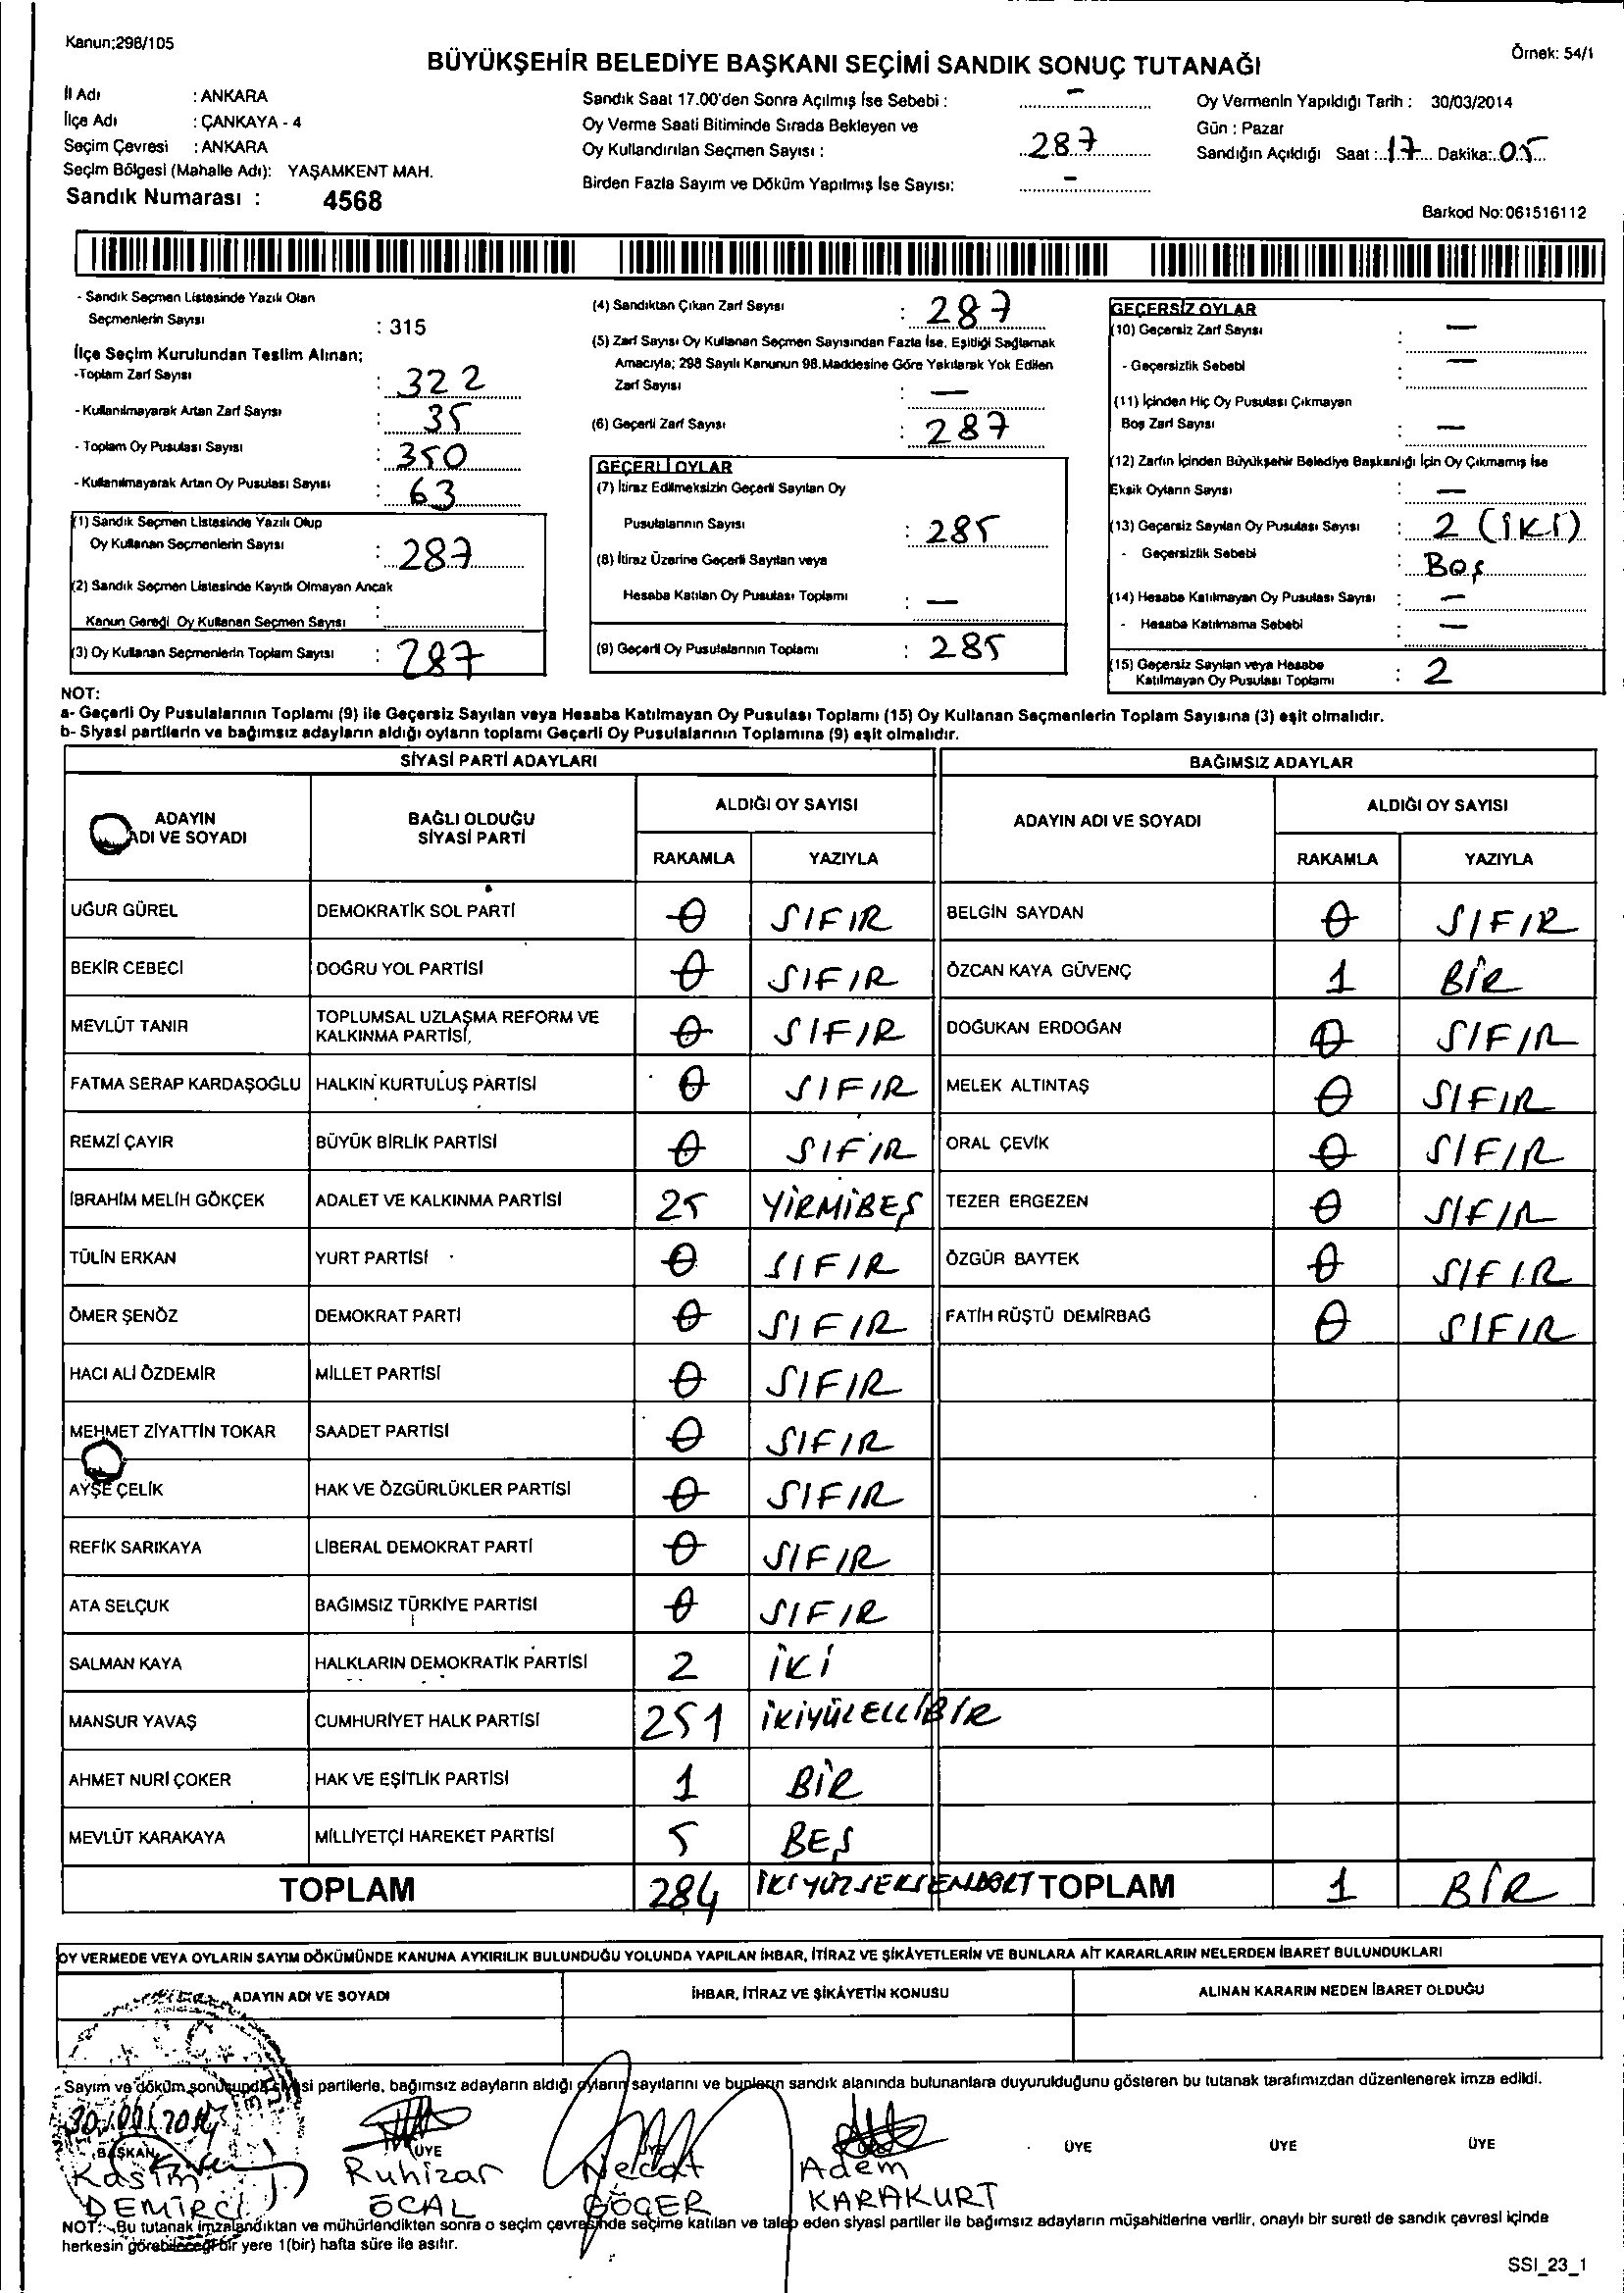 Kanun:298/105
Örnek: 54/1
BÜYÜKŞEHİR BELEDİYE BAŞKANI SEÇİMİ SANDIK SONUÇ TUTANAĞI
İl Adı : ANKARA
İlçe Adı : ÇANKAYA - 4
Seçim Çevresi : ANKARA
Seçim Bölgesi (Mahalle Adı): YAŞAMKENT MAH.
Sandık Numarası : 4568
Sandık Saat 17.00'den Sonra Açılmış İse Sebebi : -
Oy Verme Saati Bitiminde Sırada Bekleyen ve
Oy Kullandırılan Seçmen Sayısı : 287
Birden Fazla Sayım ve Döküm Yapılmış İse Sayısı: -
Oy Vermenin Yapıldığı Tarih : 30/03/2014
Gün : Pazar
Sandığın Açıldığı Saat : 17 Dakika: 05
Barkod No:061516112
- Sandık Seçmen Listesinde Yazılı Olan
Seçmenlerin Sayısı : 315
İlçe Seçim Kurulundan Teslim Alınan;
-Toplam Zarf Sayısı : 322
- Kullanılmayarak Artan Zarf Sayısı : 35
- Toplam Oy Pusulası Sayısı : 350
- Kullanılmayarak Artan Oy Pusulası Sayısı : 63
(1) Sandık Seçmen Listesinde Yazılı Olup
Oy Kullanan Seçmenlerin Sayısı : 287
(2) Sandık Seçmen Listesinde Kayıtlı Olmayan Ancak
Kanun Gereği Oy Kullanan Seçmen Sayısı :
(3) Oy Kullanan Seçmenlerin Toplam Sayısı : 287
(4) Sandıktan Çıkan Zarf Sayısı : 287
(5) Zarf Sayısı Oy Kullanan Seçmen Sayısından Fazla İse, Eşitliği Sağlamak
Amacıyla; 298 Sayılı Kanunun 98.Maddesine Göre Yakılarak Yok Edilen
Zarf Sayısı : -
(6) Geçerli Zarf Sayısı : 287
GEÇERLİ OYLAR
(7) İtiraz Edilmeksizin Geçerli Sayılan Oy
Pusulalarının Sayısı : 285
(8) İtiraz Üzerine Geçerli Sayılan veya
Hesaba Katılan Oy Pusulası Toplamı : -
(9) Geçerli Oy Pusulalarının Toplamı : 285
GEÇERSİZ OYLAR
(10) Geçersiz Zarf Sayısı : -
- Geçersizlik Sebebi : -
(11) İçinden Hiç Oy Pusulası Çıkmayan
Boş Zarf Sayısı : -
(12) Zarfın İçinden Büyükşehir Belediye Başkanlığı İçin Oy Çıkmamış İse
Eksik Oyların Sayısı : -
(13) Geçersiz Sayılan Oy Pusulası Sayısı : 2 (İKİ)
- Geçersizlik Sebebi : Boş
(14) Hesaba Katılmayan Oy Pusulası Sayısı : -
- Hesaba Katılmama Sebebi : -
(15) Geçersiz Sayılan veya Hesaba
Katılmayan Oy Pusulası Toplamı : 2
NOT:
a- Geçerli Oy Pusulalarının Toplamı (9) ile Geçersiz Sayılan veya Hesaba Katılmayan Oy Pusulası Toplamı (15) Oy Kullanan Seçmenlerin Toplam Sayısına (3) eşit olmalıdır.
b- Siyasi partilerin ve bağımsız adayların aldığı oyların toplamı Geçerli Oy Pusulalarının Toplamına (9) eşit olmalıdır.
SİYASİ PARTİ ADAYLARI BAĞIMSIZ ADAYLAR
ADAYIN ADI VE SOYADI BAĞLI OLDUĞU SİYASİ PARTİ ALDIĞI OY SAYISI RAKAMLA YAZIYLA ADAYIN ADI VE SOYADI ALDIĞI OY SAYISI RAKAMLA YAZIYLA
UĞUR GÜREL DEMOKRATİK SOL PARTİ 0 SIFIR BELGİN SAYDAN 0 SIFIR
BEKİR CEBECİ DOĞRU YOL PARTİSİ 0 SIFIR ÖZCAN KAYA GÜVENÇ 1 BİR
MEVLÜT TANIR TOPLUMSAL UZLAŞMA REFORM VE KALKINMA PARTİSİ 0 SIFIR DOĞUKAN ERDOĞAN 0 SIFIR
FATMA SERAP KARDAŞOĞLU HALKIN KURTULUŞ PARTİSİ 0 SIFIR MELEK ALTINTAŞ 0 SIFIR
REMZİ ÇAYIR BÜYÜK BİRLİK PARTİSİ 0 SIFIR ORAL ÇEVİK 0 SIFIR
İBRAHİM MELİH GÖKÇEK ADALET VE KALKINMA PARTİSİ 25 YİRMİBEŞ TEZER ERGEZEN 0 SIFIR
TÜLİN ERKAN YURT PARTİSİ 0 SIFIR ÖZGÜR BAYTEK 0 SIFIR
ÖMER ŞENÖZ DEMOKRAT PARTİ 0 SIFIR FATİH RÜŞTÜ DEMİRBAĞ 0 SIFIR
HACI ALİ ÖZDEMİR MİLLET PARTİSİ 0 SIFIR
MEHMET ZİYATTİN TOKAR SAADET PARTİSİ 0 SIFIR
AYŞE ÇELİK HAK VE ÖZGÜRLÜKLER PARTİSİ 0 SIFIR
REFİK SARIKAYA LİBERAL DEMOKRAT PARTİ 0 SIFIR
ATA SELÇUK BAĞIMSIZ TÜRKİYE PARTİSİ 0 SIFIR
SALMAN KAYA HALKLARIN DEMOKRATİK PARTİSİ 2 İKİ
MANSUR YAVAŞ CUMHURİYET HALK PARTİSİ 251 İKİYÜZELLİBİR
AHMET NURİ ÇOKER HAK VE EŞİTLİK PARTİSİ 1 BİR
MEVLÜT KARAKAYA MİLLİYETÇİ HAREKET PARTİSİ 5 BEŞ
TOPLAM 284 İKİYÜZSEKSENDÖRT TOPLAM 1 BİR
OY VERMEDE VEYA OYLARIN SAYIM DÖKÜMÜNDE KANUNA AYKIRILIK BULUNDUĞU YOLUNDA YAPILAN İHBAR, İTİRAZ VE ŞİKÂYETLERİN VE BUNLARA AİT KARARLARIN NELERDEN İBARET BULUNDUKLARI
ADAYIN ADI VE SOYADI İHBAR, İTİRAZ VE ŞİKÂYETİN KONUSU ALINAN KARARIN NEDEN İBARET OLDUĞU
Sayım ve döküm sonucunda siyasi partilerle, bağımsız adayların aldığı oyların sayılarını ve bunların sandık alanında bulunanlara duyurulduğunu gösteren bu tutanak tarafımızdan düzenlenerek imza edildi.
BAŞKAN ÜYE ÜYE ÜYE ÜYE ÜYE
Kasım Ruhizar Necat Adem
DEMİRCİ ÖCAL GÖÇER KARAKURT
NOT: Bu tutanak imzalandıktan ve mühürlendikten sonra o seçim çevresinde seçime katılan ve talep eden siyasi partiler ile bağımsız adayların müşahitlerine verilir, onaylı bir sureti de sandık çevresi içinde
herkesin görebileceği bir yere 1(bir) hafta süre ile asılır.
SSI_23_1